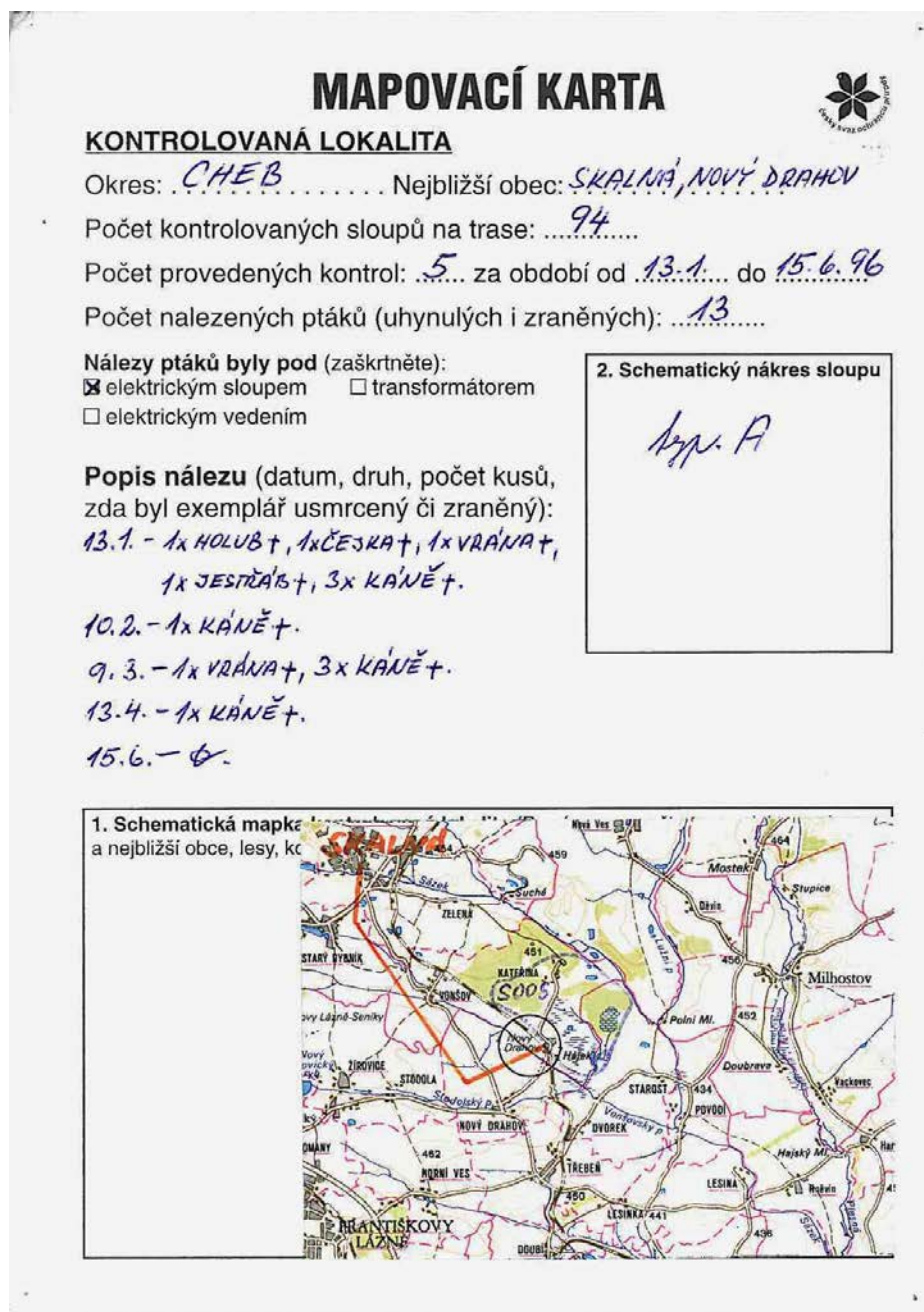 MAPOVACÍ KARTA
český svaz ochránců přírody
KONTROLOVANÁ LOKALITA
Okres: . CHEB . . . . . . . Nejbližší obec: SKALNÁ, NOVÝ DRAHOV
Počet kontrolovaných sloupů na trase: ....94....
Počet provedených kontrol: ..5.... za období od ..13.1... do 15.6.96
Počet nalezených ptáků (uhynulých i zraněných): ...13....
Nálezy ptáků byly pod (zaškrtněte):
☒ elektrickým sloupem ☐ transformátorem
☐ elektrickým vedením
2. Schematický nákres sloupu
typ. A
Popis nálezu (datum, druh, počet kusů,
zda byl exemplář usmrcený či zraněný):
13.1. - 1x HOLUB +, 1xČEJKA +, 1x VRÁNA +,
1x JESTŘÁB +, 3x KÁNĚ +.
10.2. - 1x KÁNĚ +.
9.3. - 1x VRÁNA +, 3x KÁNĚ +.
13.4. - 1x KÁNĚ +.
15.6. -
1. Schematická mapka
a nejbližší obce, lesy,
SKALNÁ
Nová Ves
464
454
459
Mostek
Sázek
Suché
Stupice
Děvín
ZELENÁ
Lužní p.
STARÝ RYBNÍK
451
KATEŘINA
SOOS
456
Milhostov
VONŠOV
Lázně-Seníky
Polní Ml.
452
Nový Drahov
Hájek
Doubrava
ŽÍROVICE
STODOLA
STAROST
434
Vackovec
Stodolský p.
Vonšovský p.
POVODÍ
NOVÝ DRAHOV
DVOREK
462
Hajský Ml.
HORNÍ VES
TŘEBEŇ
LESINA
Hněvín
450
LESINKA 441
Plesná
Sázek
FRANTIŠKOVY
LÁZNĚ
436
DOUBÍ